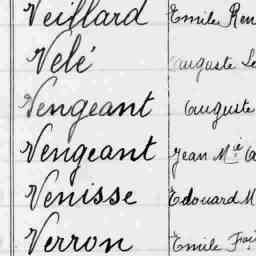 Veillard Emile Ren
Vélé Auguste Le
Vengeant Auguste
Vengeant Jean Mie A
Venisse Edouard M
Verron Emile Fran